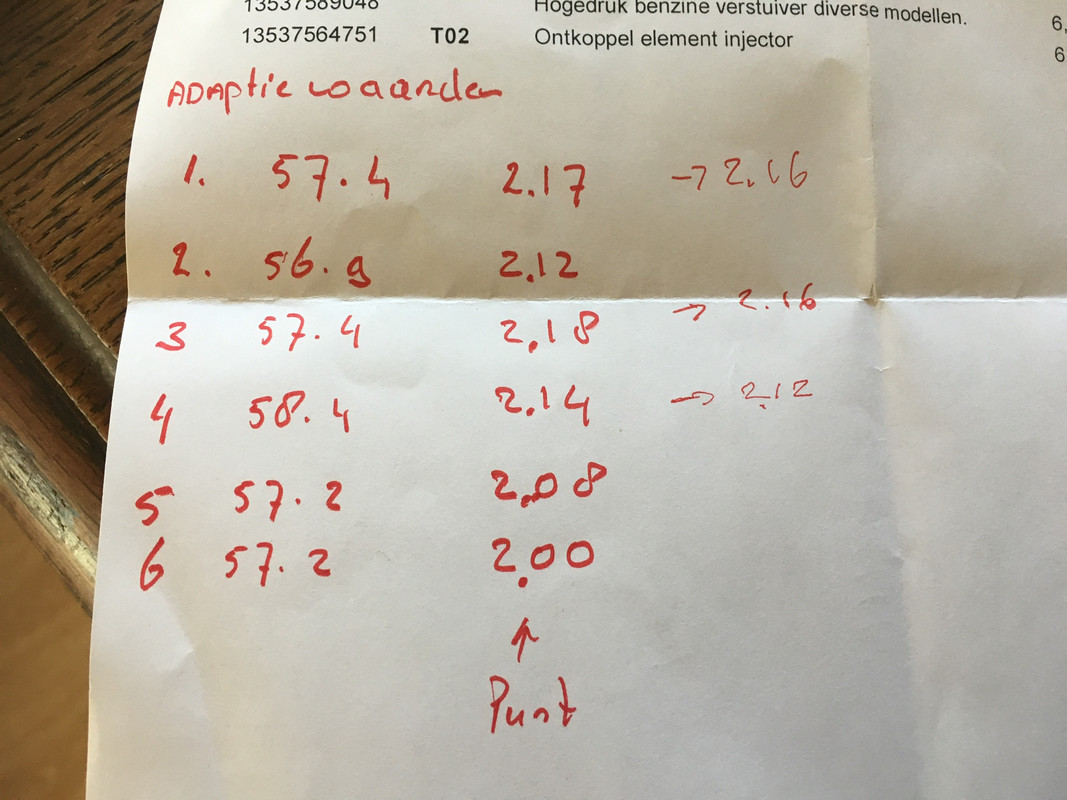 13537589048 Hogedruk benzine verstuiver diverse modellen. 6,
13537564751 T02 Ontkoppel element injector 6
ADAptie waarden
1. 57.4 2.17 → 2.16
2. 56.9 2.12
3 57.4 2.18 → 2.16
4 58.4 2.14 → 2.12
5 57.2 2.08
6 57.2 2.00
↑
Punt